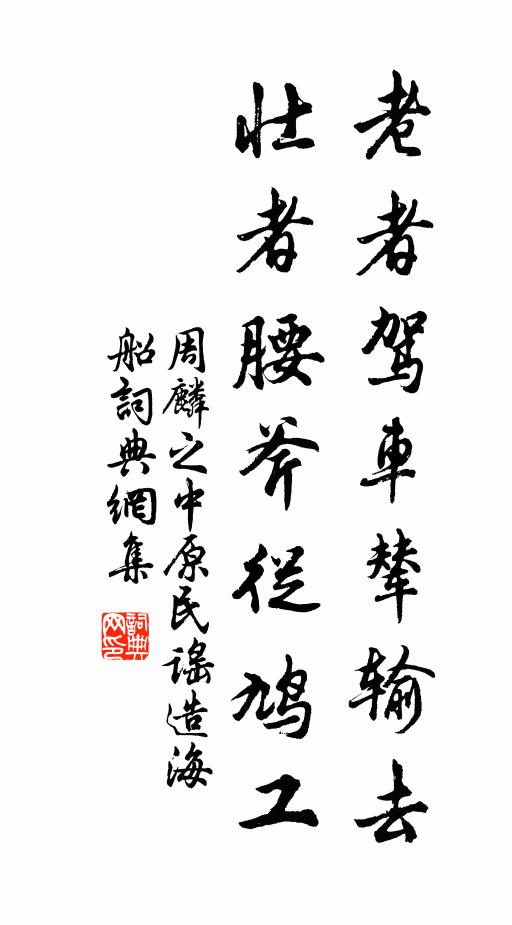 老者駕車輦输去
壯者腰斧從鳩工
周麟之中原民謠造海
船詞典網集
詞典
网印